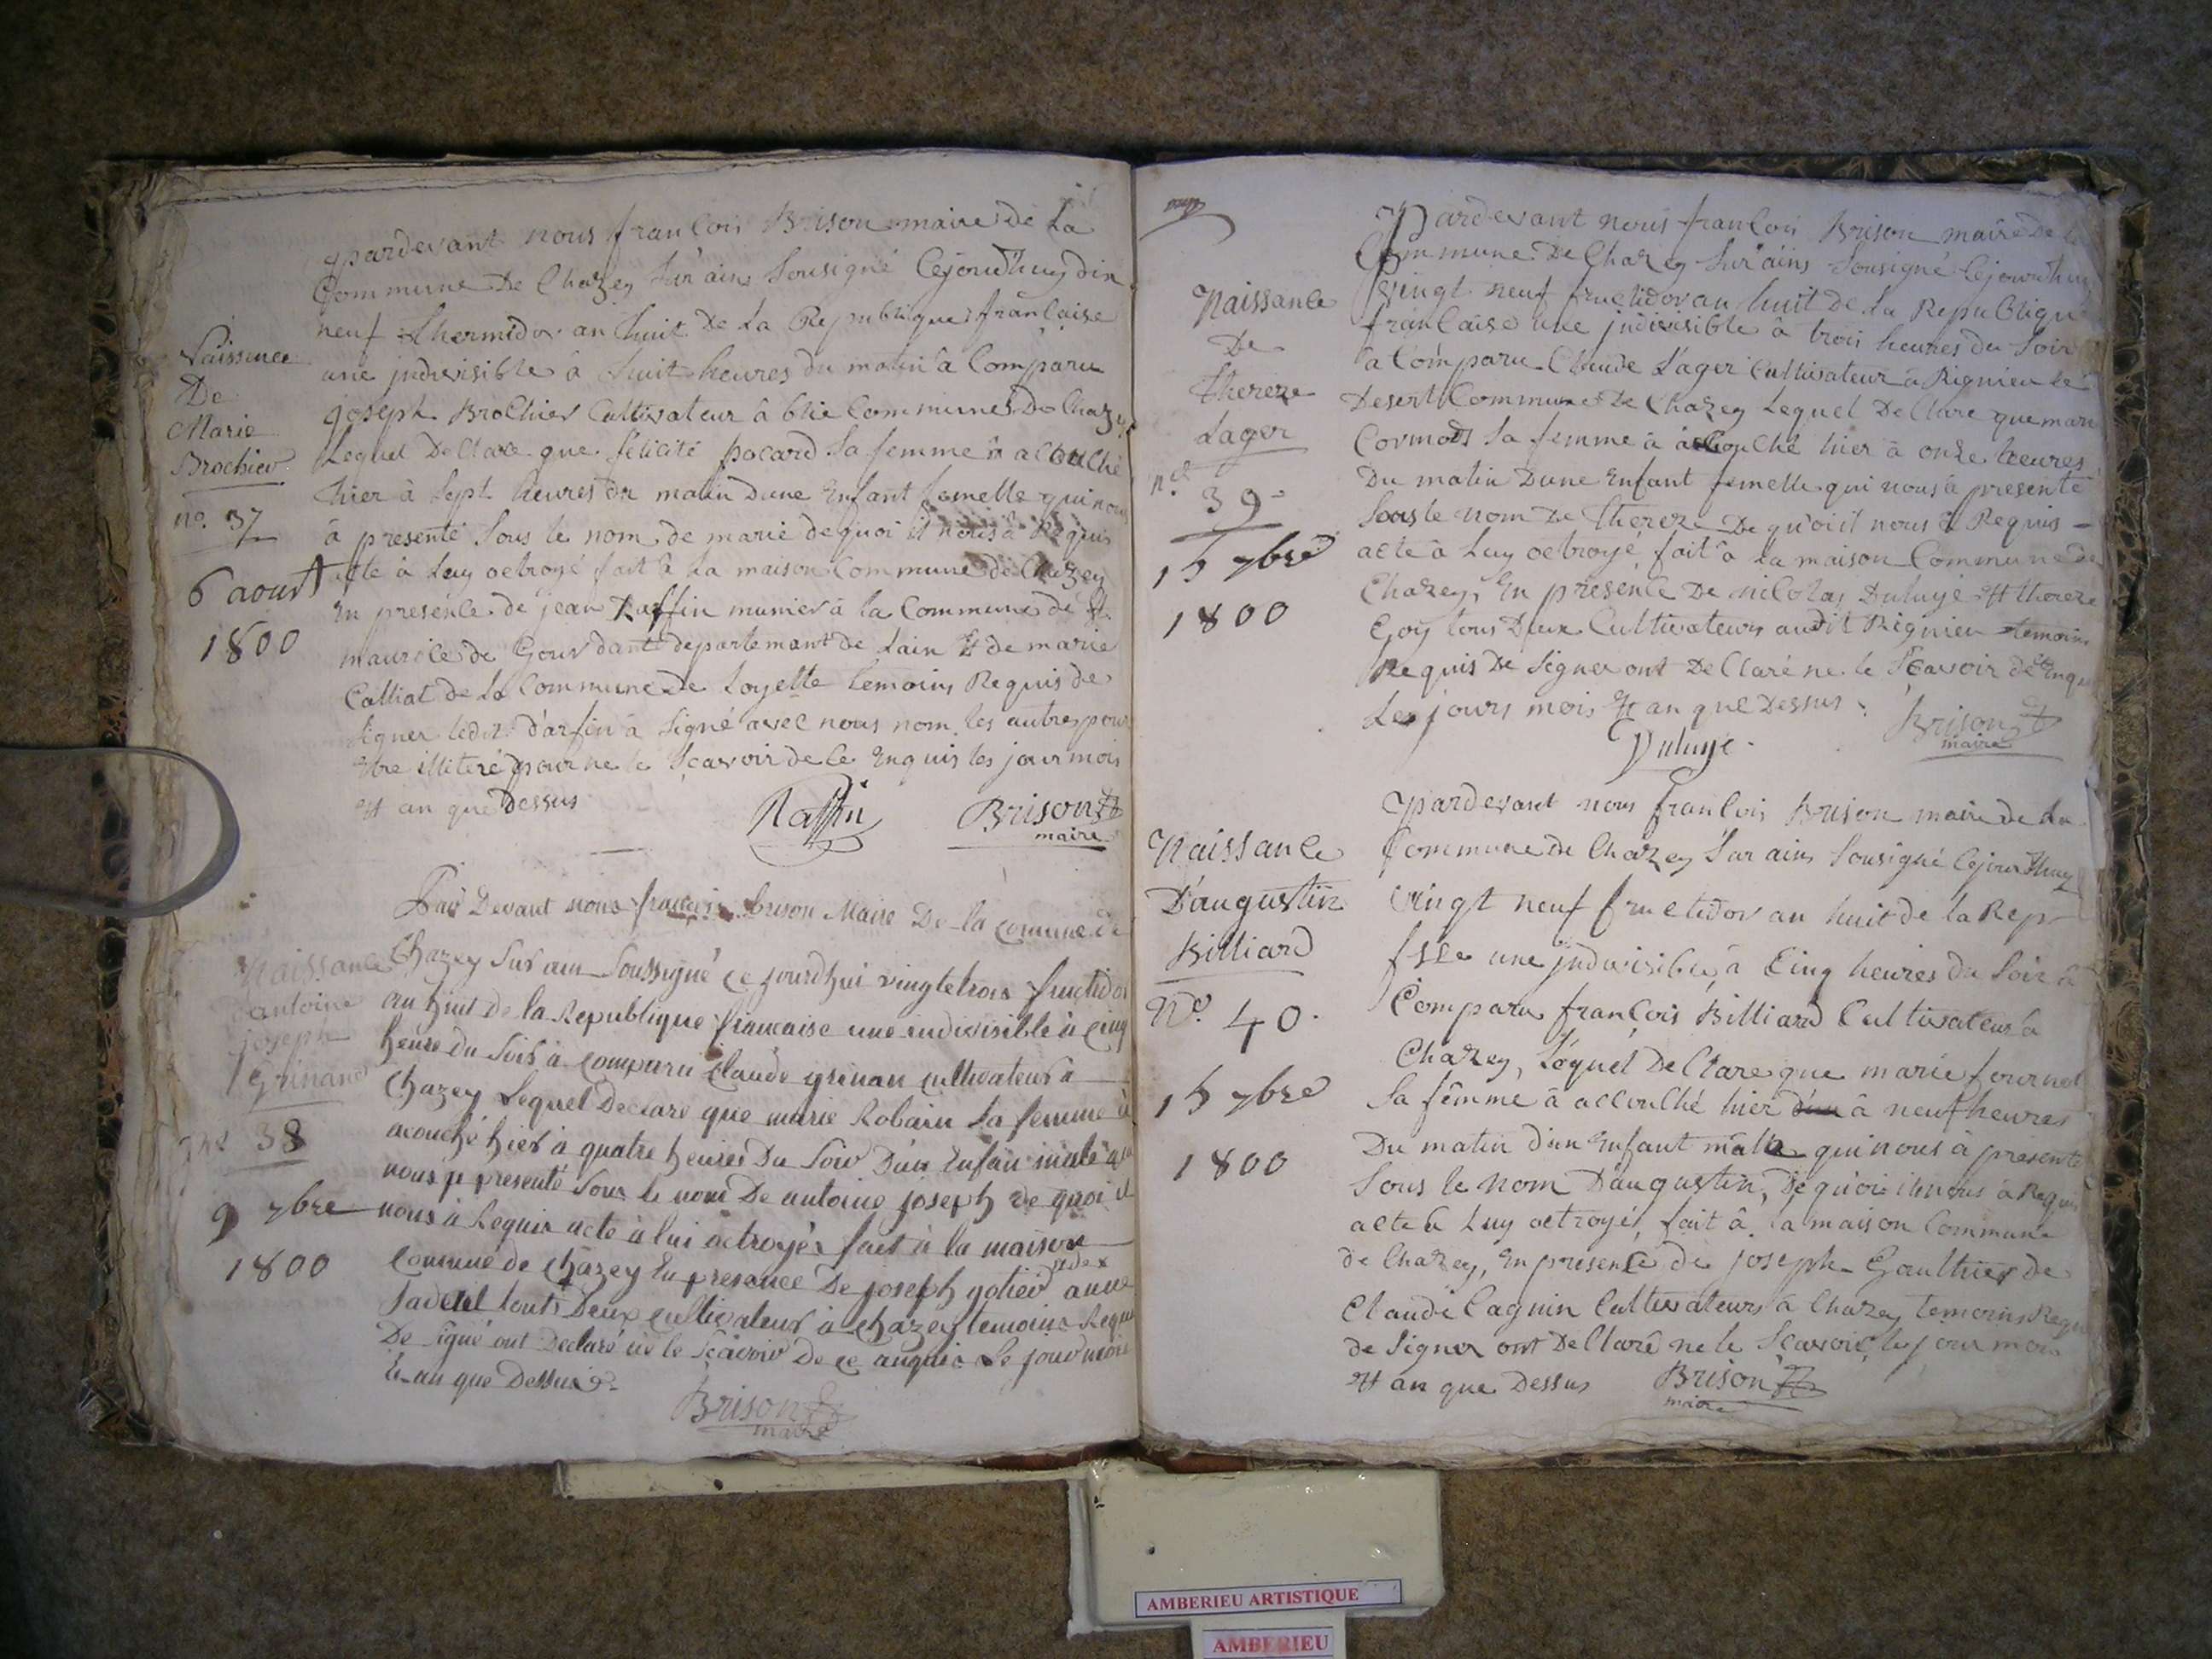 pardevant nous françois Brison maire de La
Commune De Chazey Sur ains Sousigné Cejourd'huy dix
neuf thermidor an huit De La Republique française
une jndivisible à huit heures du matin à Comparu
joseph Brochier Cultivateur à blie Commune De Chazey
Lequel Declare que félicité pacard Sa femme à acouché
hier à Sept heures du matin Dune Enfant femelle qui nous
à presenté Sous le nom de marie de quoi il nous à Requis
acte à Luy octroyé fait à La maison Commune de Chazey
En presence de jean Raffin munier à la Commune de St
maurice de Gourdant departemant de Lain Et de marie
Calliat de La Commune de Loyette temoins Requis de
Signer ledit à Signé avec nous nom les autres pour
Etre illiteré pour ne le Scavoir de ce Enquis les jour mois
Et an que Dessus
Raffin Brison
maire
Naissence
De
Marie
Brochier
no. 37
6 aoust
1800
Par Devant nous françois brison Maire De la comune de
Chazey Sur ain Soussigné ce jourdhui vingtetrois fructidor
an huit de la Republique française une indivisible à cinq
heure du Soir à comparu Claude grinan cultivateur à
Chazey Lequel Declare que marie Robain Sa femme à
acouché hier à quatre heures Du Soir D'un Enfan male qui
nous presenté Sous le nom De antoine joseph de quoi il
nous à Requis acte à lui octroyér fait à la maison
Comune de Chazey En presance De joseph gotier anne
touts Deux cultivateur à Chazey temoins Requi
De signé ont Declaré ne le Scavoir De ce anquis Le jour mois
Et an que Dessus
Brison
maire
Naissance
d'antoine
joseph
Grinand
no 38
9 7bre
1800
Pardevant nous françois Brison maire De la
Commune De Chazey Sur ains Sousigné Cejourd'huy
vingt neuf fructidor an huit de La Republique
française une jndivisible à trois heures du Soir
à Comparu Claude Lager Cultivateur à Rignieu le
Desert Commune De Chazey Lequel Declare que mari
Cormods Sa femme à acouché hier à onze heures
Du matin Dune Enfant femelle qui nous à presenté
Sous le nom De thereze De quoi il nous à Requis
acte à Luy octroyé fait à la maison Commune de
Chazey, En presence De nicolas Duluye Et thereze
Goy tous Deux Cultivateurs audit Rignieu temoins
Requis De Signer ont Declaré ne le Scavoir de ce Enqui
Les jours mois Et an que Dessus
Duluye Brison
maire
Naissance
De
thereze
Lager
no.
39
15 7bre
1800
pardevant nous françois Brison maire de La
Commune de Chazey Sur ains Sousigné Cejourdhuy
vingt neuf fructidor an huit de la Rep
fsse une jndivisible à Cinq heures du Soir à
Comparu françois Billiard Cultivateur à
Chazey, Lequel Declare que marie fournet
Sa femme à accouché hier à neuf heures
Du matin d'un Enfant male qui nous à presenté
Sous le nom D'augustin, De quoi il nous à Requis
acte à Luy octroyé, fait à la maison Commune
de Chazey, En presence de joseph Gaulthier de
Claude Cagnin Cultivateurs à Chazey temoins Requi
de Signer ont Declaré ne le Scavoir les jour mois
Et an que Dessus Brison
maire
Naissance
D'augustin
Billiard
No. 40.
15 7bre
1800
AMBERIEU ARTISTIQUE
AMBERIEU